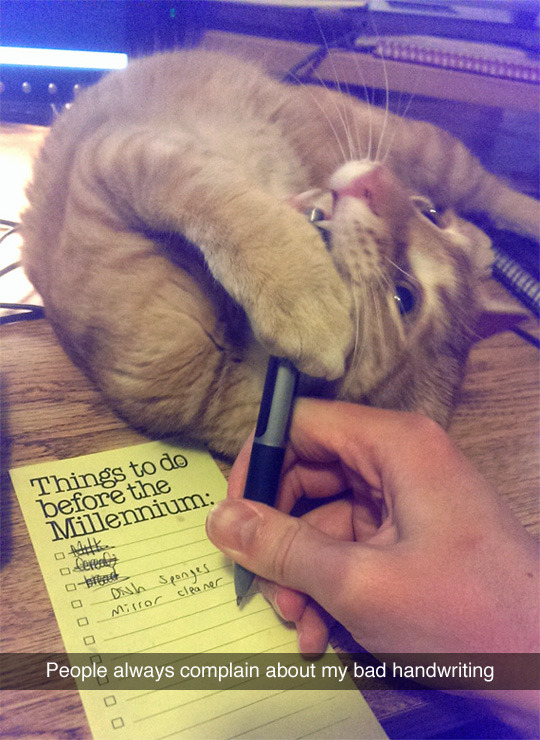 Things to do
before the
Millennium:
Milk
Cereal
bread
Dish Sponges
Mirror cleaner
People always complain about my bad handwriting